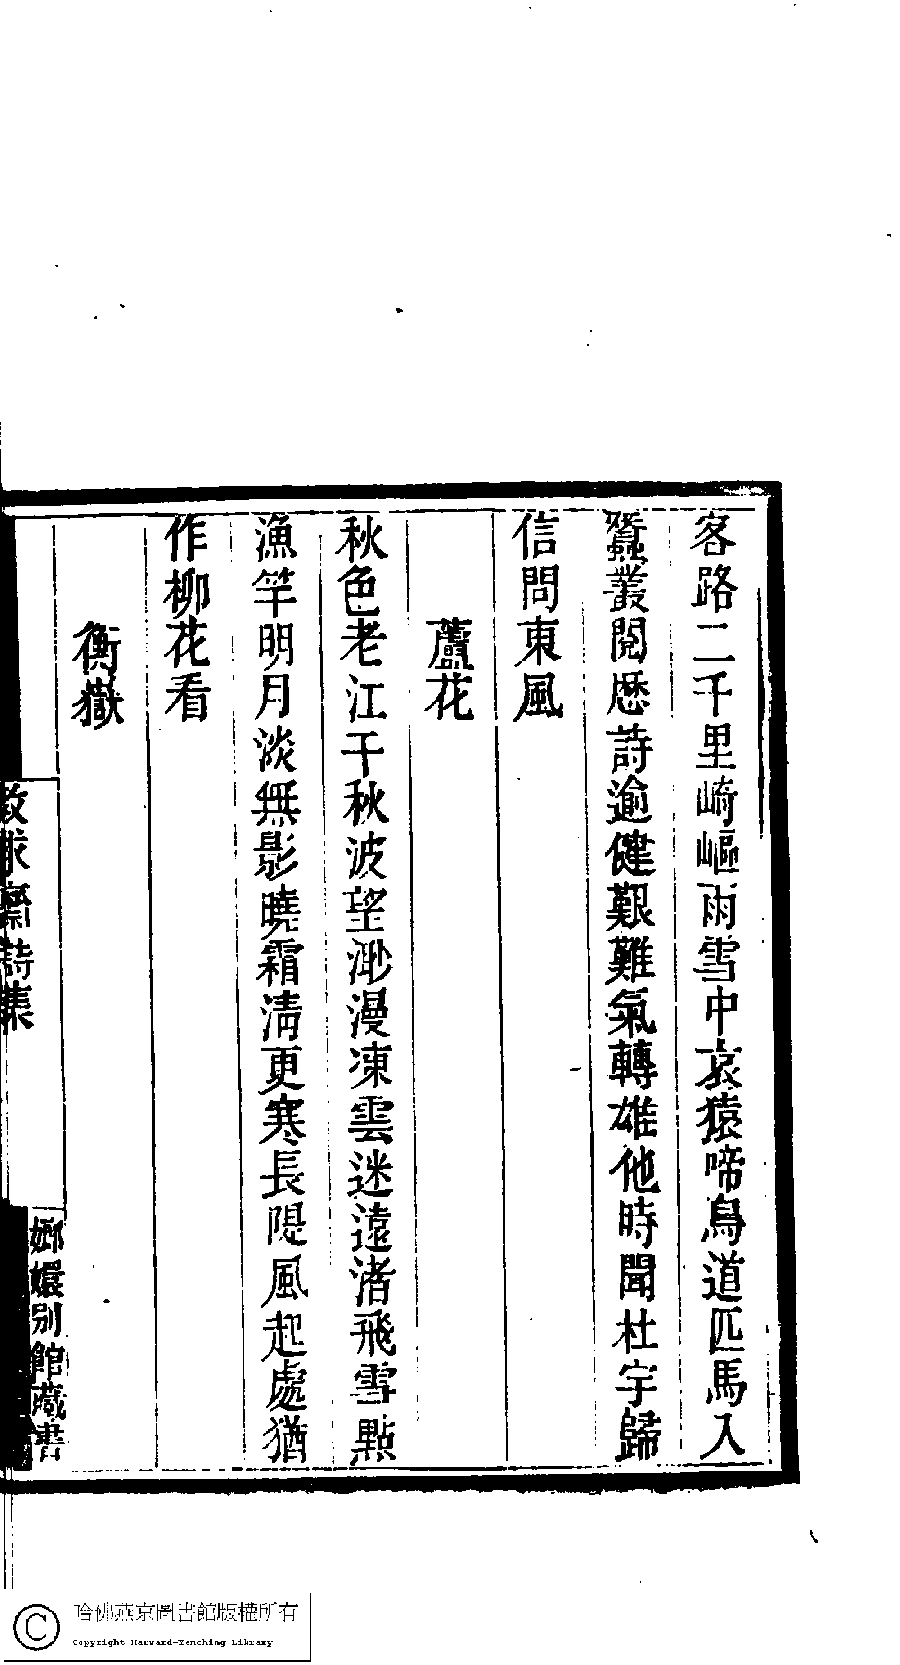 客路二千里崎嶇雨雪中哀猿啼鳥道匹馬入
蠶叢閱歷詩逾健艱難氣轉雄他時聞杜宇歸
信問東風
蘆花
秋色老江干秋波望渺漫凍雲迷遠渚飛雪點
漁竿明月淡無影曉霜清更寒長隄風起處猶
作柳花看
衡嶽
齋詩集
嫏嬛別館藏書
哈佛燕京圖書館版權所有
Copyright Harvard-Yenching Library